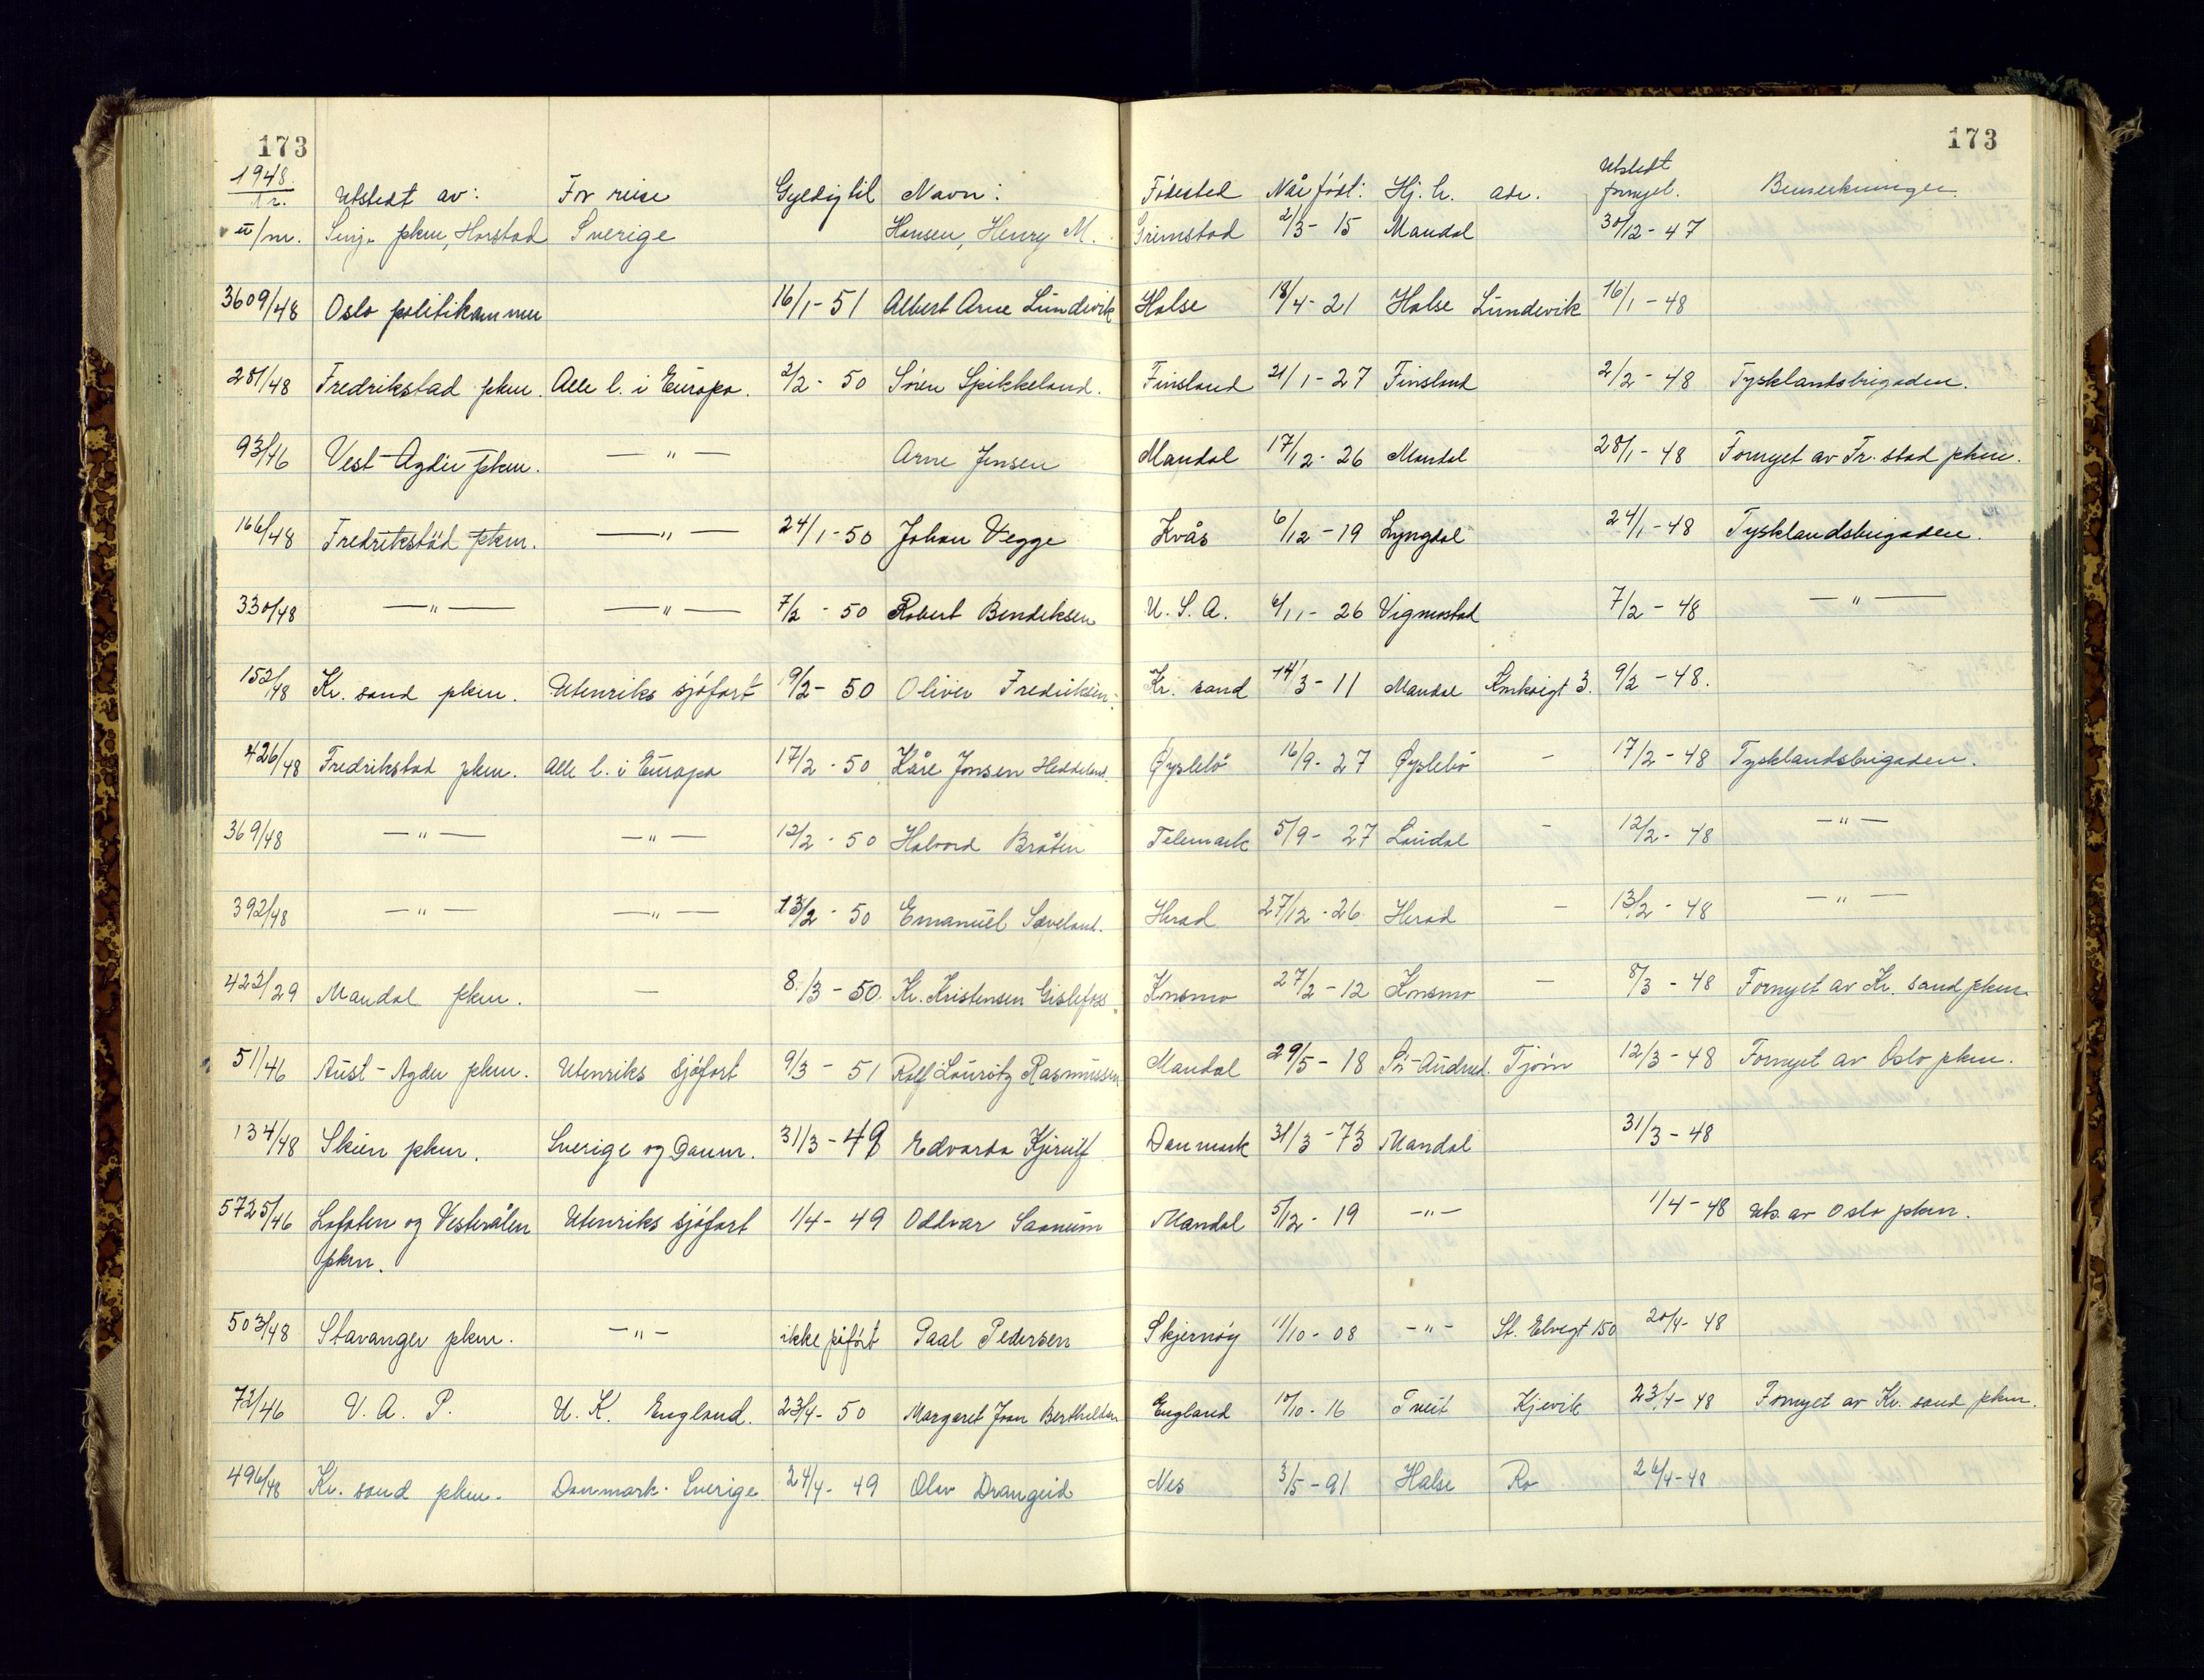 173 173
1948. Nr. Utstedt av: For reise Gyldig til Navn: Fødested Når født: Hj.h. adr. Utstedt fornyet. Bemerkninger
u/nr. Senja pkm, Harstad Sverige Hansen, Henry M. Grimstad 2/3-15 Mandal 30/12-47
3609/48 Oslo politikammer 16/1-51 Albert Arne Lundevik Halse 18/4-21 Halse Lundevik 16/1-48
281/48 Fredrikstad pkm. Alle l. i Europa. 2/2-50 Søren Spikkeland. Finsland 21/1-27 Finsland 2/2-48 Tysklandsbrigaden.
93/46 Vest-Agder pkm. —"— Arne Jensen Mandal 17/12-26 Mandal 28/1-48 Fornyet av Fr.stad pkm.
166/48 Fredrikstad pkm. —"— 24/1-50 Johan Vegge Kvås 6/12-19 Lyngdal 24/1-48 Tysklandsbrigaden.
330/48 —"— —"— 7/2-50 Robert Bendiksen U.S.A. 6/11-26 Vigmostad 7/2-48 —"—
152/48 Kr.sand pkm. Utenriks sjøfart 9/2-50 Oliver Fredriksen. Kr.sand 14/3-11 Mandal 3. 9/2-48.
426/48 Fredrikstad pkm. Alle l. i Europa 17/2-50 Kåre Jonsen Heddeland. Øyslebø 16/9-27 Øyslebø - 17/2-48 Tysklandsbrigaden.
369/48 —"— —"— 12/2-50 Halvord Bråten Telemark 5/9-27 Laudal - 12/2-48 —"—
392/48 —"— —"— 13/2-50 Emanuel Sæveland. Herad 27/12-26 Herad - 13/2-48 —"—
422/29 Mandal pkm. — 8/3-50 Kr. Kristensen Gislefoss Konsmo 27/2-12 Konsmo - 8/3-48 Fornyet av Kr.sand pkm.
51/46 Aust-Agder pkm. Utenriks sjøfart 9/3-51 Rolf Lauritz Rasmussen Mandal 29/5-18 Sør-Audned. Tjøm 12/3-48 Fornyet av Oslo pkm.
134/48 Skien pkm. Sverige og Danm. 31/3-49 Edvarda Kjerulf Danmark 31/3-73 Mandal 31/3-48
5725/46 Lofoten og Vesterålen Utenriks sjøfart 1/4-49 Oddvar Saanum Mandal 5/12-19 -"- 1/4-48 uts. av Oslo pkm.
pkm.
503/48 Stavanger pkm. -"- ikke påført Paal Pedersen Skjernøy 11/10-08 -"- St. Elvegt 150 20/4-48
72/46 V.A.P. U.K. England. 23/4-50 Margaret Joan Berthelsen England 10/10-16 Tveit Kjevik 23/4-48 Fornyet av Kr.sand pkm.
496/48 Kr.sand pkm. Danmark-Sverige 24/4-49 Olav Drangeid Nes 3/5-91 Halse Ro 26/4-48